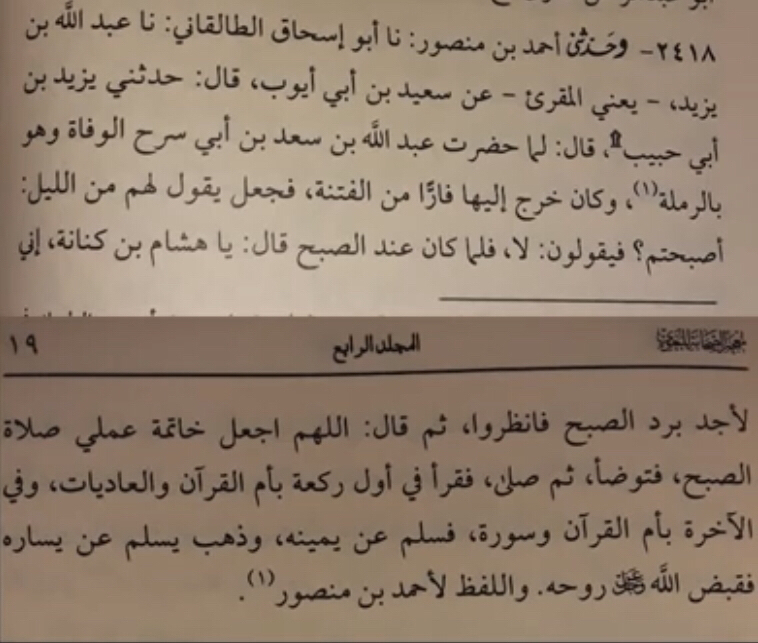 ٢٤١٨- وحدثني أحمد بن منصور: نا أبو إسحاق الطالقاني: نا عبد الله بن
يزيد، - يعني المقرئ - عن سعيد بن أبي أيوب، قال: حدثني يزيد بن
أبي حبيب، قال: لما حضرت عبد الله بن سعد بن أبي سرح الوفاة وهو
بالرملة(١)، وكان خرج إليها فارًّا من الفتنة، فجعل يقول لهم من الليل:
أصبحتم؟ فيقولون: لا، فلما كان عند الصبح قال: يا هشام بن كنانة، إني
معجم الصحابة للبغوي المجلد الرابع ١٩
لأجد برد الصبح فانظروا، ثم قال: اللهم اجعل خاتمة عملي صلاة
الصبح، فتوضأ، ثم صلى، فقرأ في أول ركعة بأم القرآن والعاديات، وفي
الآخرة بأم القرآن وسورة، فسلم عن يمينه، وذهب يسلم عن يساره
فقبض الله ﷿ روحه. واللفظ لأحمد بن منصور(١).